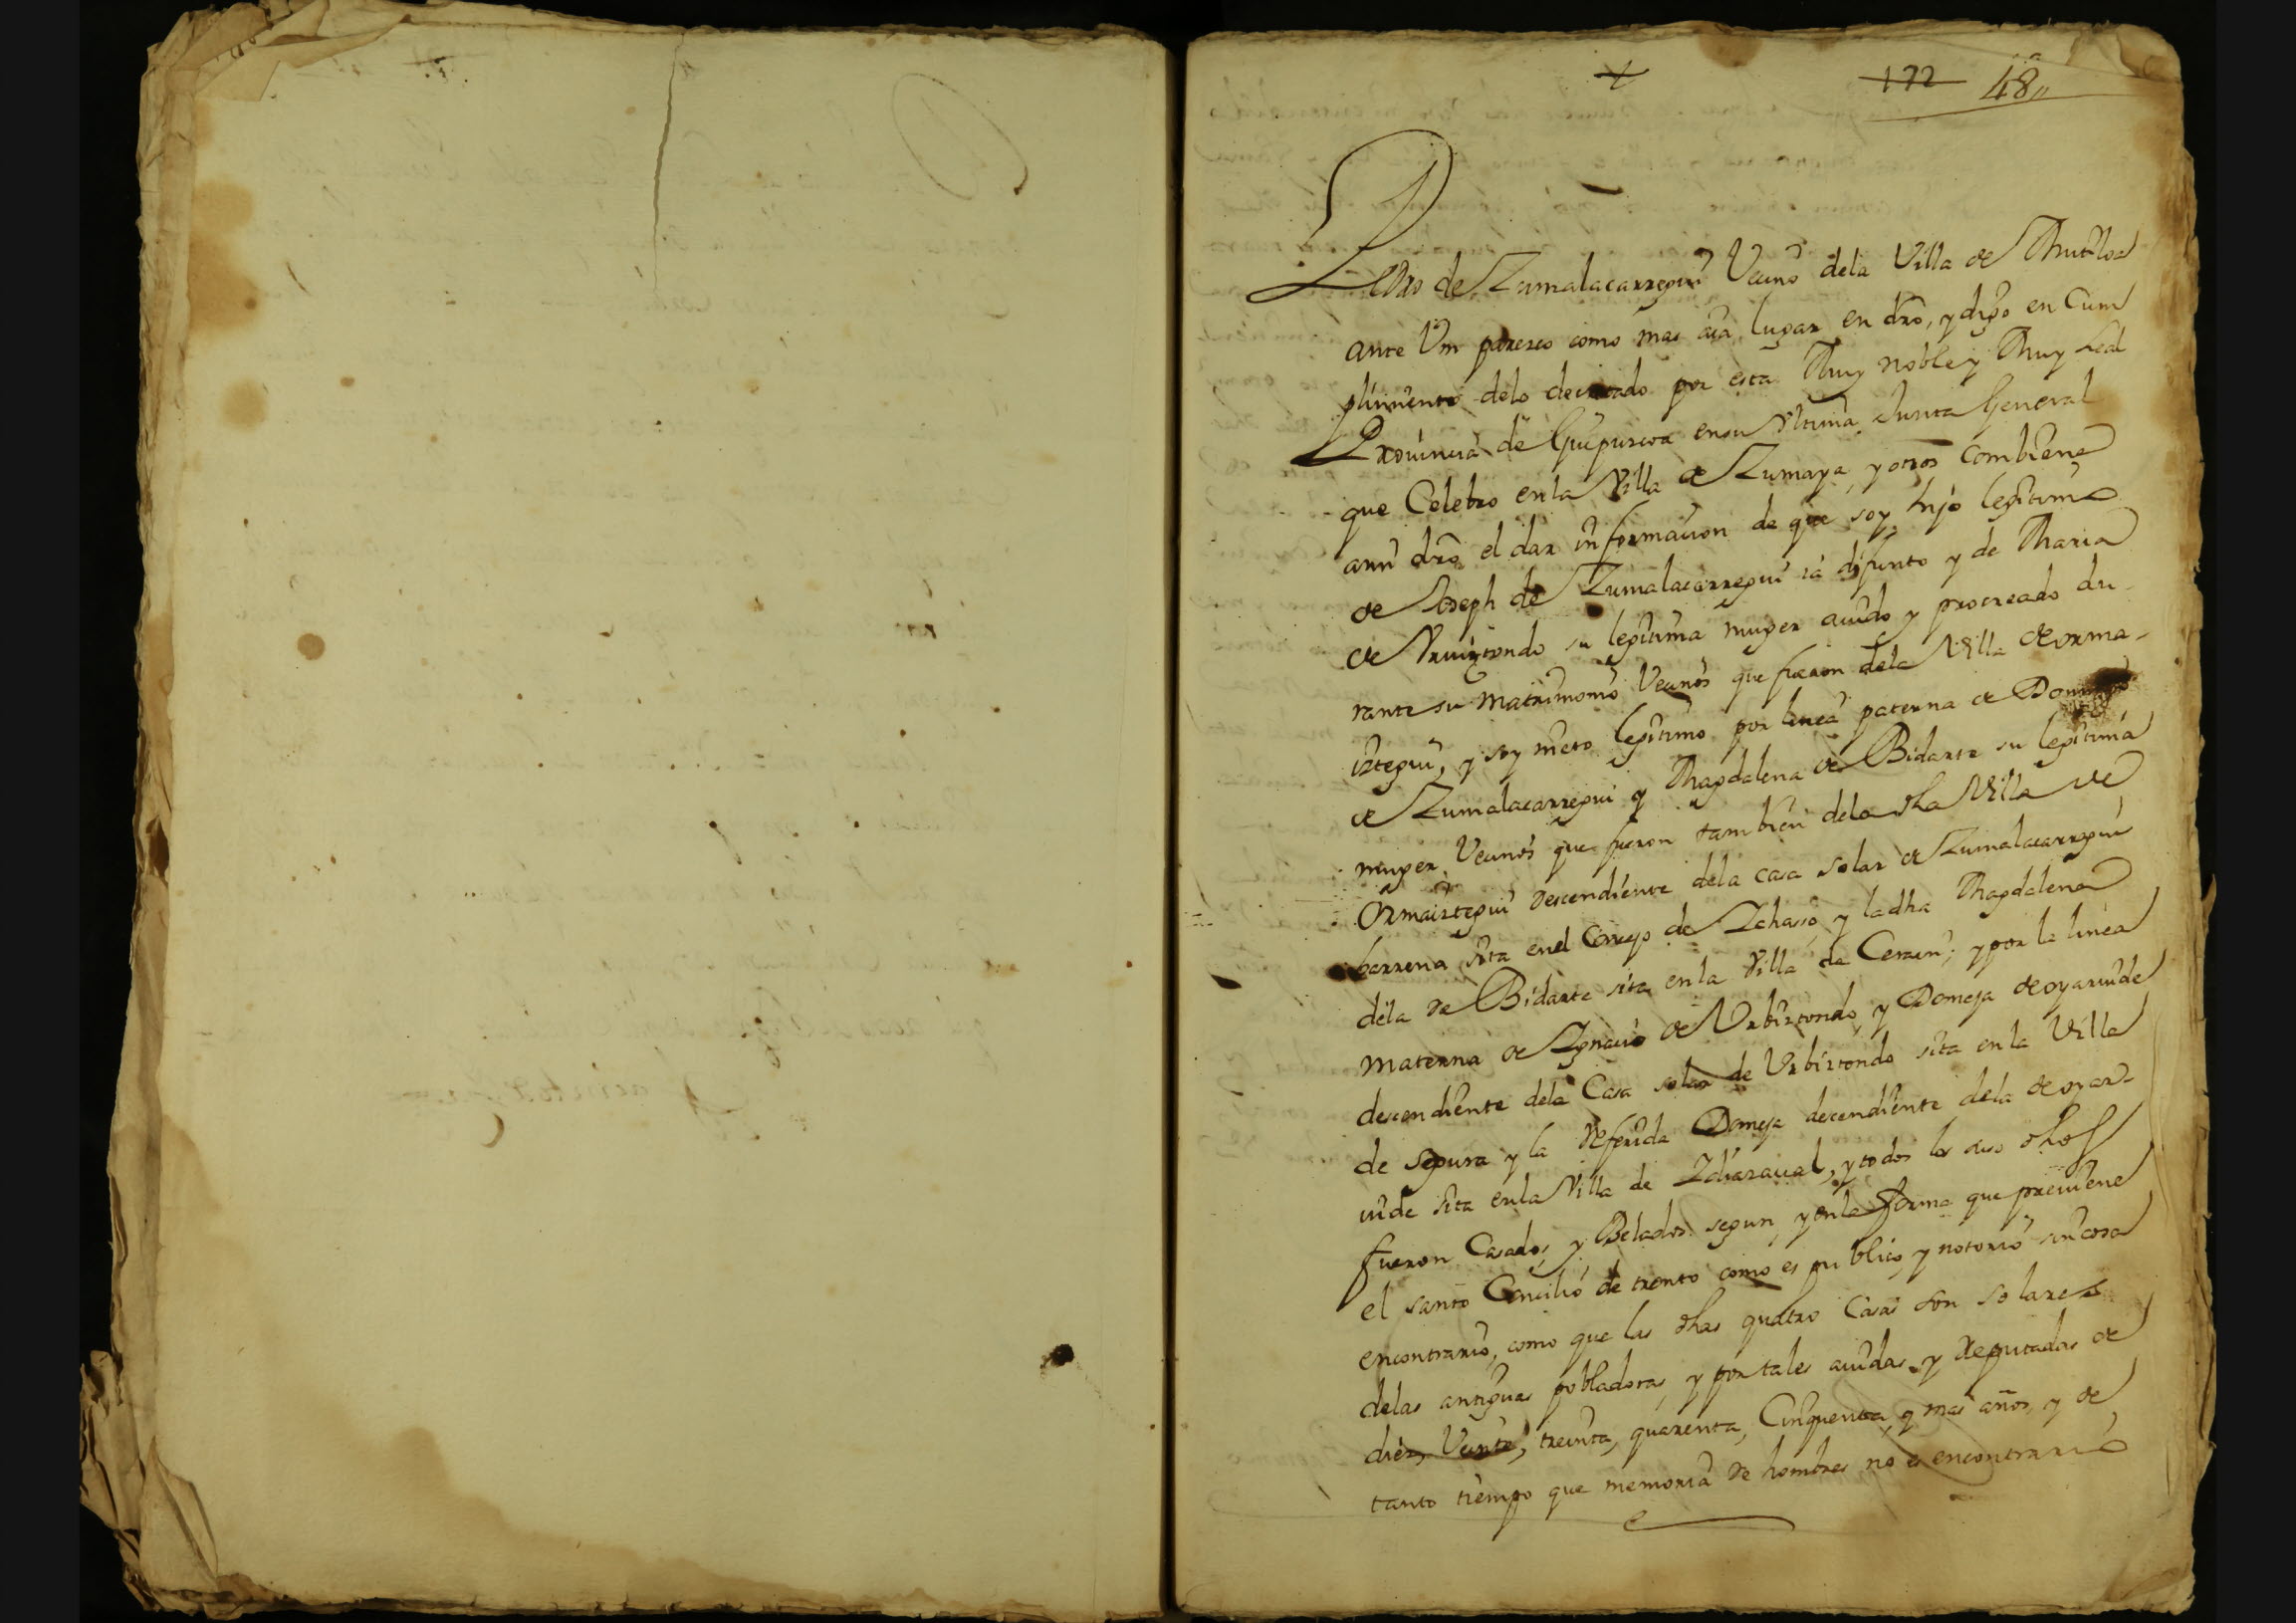 +
172 48
Pedro de Zumalacarregui Vecino dela Villa de Mutiloa
ante Vm parezco como mas aia lugar en dro, y digo en Cum
plimiento delo decretado por esta Muy noble y Muy Leal
Provincia de Guipuzcoa en su Vltima Junta General
que Celebro en la Villa de Zumaya, y otros combiene
ami dro el dar informacion de que soy hijo legitimo
de Joseph de Zumalacarregui ia difunto y de Maria
de Vruiztondo su legitima muger auido y procreado du-
rante su matrimonio Vecinos que fueron dela Villa de orma-
iztegui, y soy nieto legitimo por linea paterna de Domingo
de Zumalacarregui y Magdalena de Bidarte su legitima
muger, Vecinos que fueron tambien dela dha Villa de
Ormaiztegui descendiente dela casa solar de Zumalacarregui
barrena sita en el Concejo de Zehasso, y la dha Magdalena
dela de Bidarte sita en la Villa de Cerain; y por la linea
materna de Ygnacio de Vrbiztondo, y Domeja de oyaruide
descendiente dela Casa solar de Vrbiztondo sita en la Villa
de segura y la referida Domeja descendiente dela de oyar-
uide sita en la Villa de Ydiazaual, y todos los suso dhos
fueron Casados, y Belados segun, y en la forma que previene
el santo Concilio de trento como es publico, y notorio sin cosa
encontrario, como que las dhas quatro Casas son solares
delas antiguas pobladoras, y por tales auidas y reputadas de
diez, Veinte, treinta, quarenta, Cinquenta, y mas años, y de
tanto tiempo que memoria de hombres no es encontrario